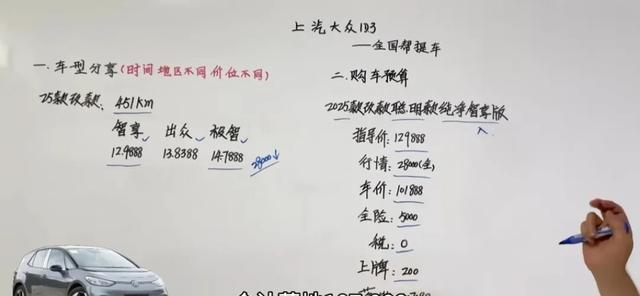 上汽大众ID3
——全国帮提车
一.车型分享(时间地区不同价位不同)
25款改款: 451KM
智享 出众 极智
12.9888 13.8388 14.7888 28000↓
二.购车预算
2025款改款聪明款纯净智享版
指导价: 129888
行情: 28000(全)
车价: 101888
全险: 5000
税: 0
上牌: 200